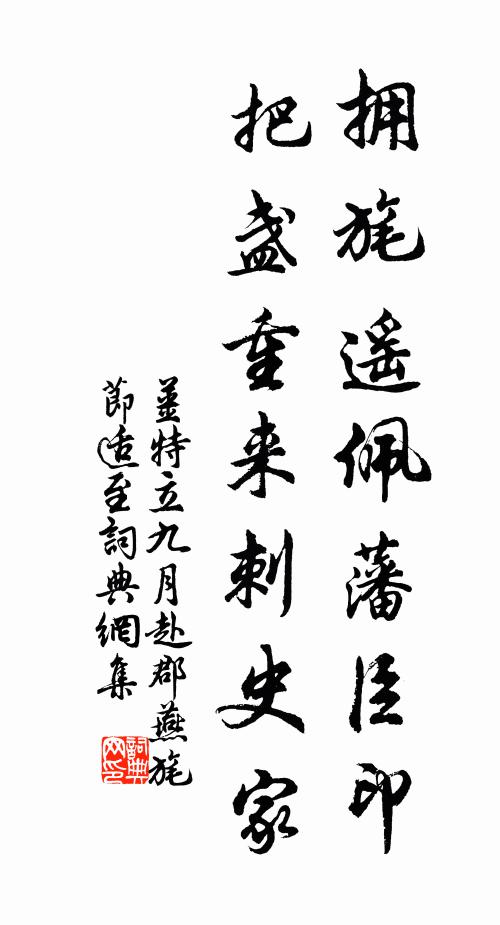 拥旄遥佩藩臣印
把盏重来刺史家
姜特立九月赴郡燕旄
節适至詞典網集
詞典網印